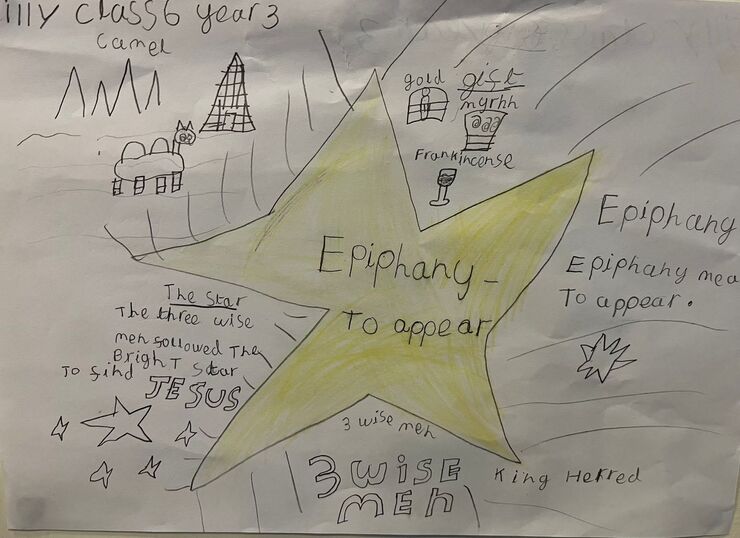 illy class6 year3
camel
gold gift
myrhh
Frankincense
Epiphany -
To appear
Epiphany
Epiphany mea
To appear.
The Star
The three wise
men followed The
Bright Star
To find JESUS
3 wise men
3 WiSE
MEn
King Herred